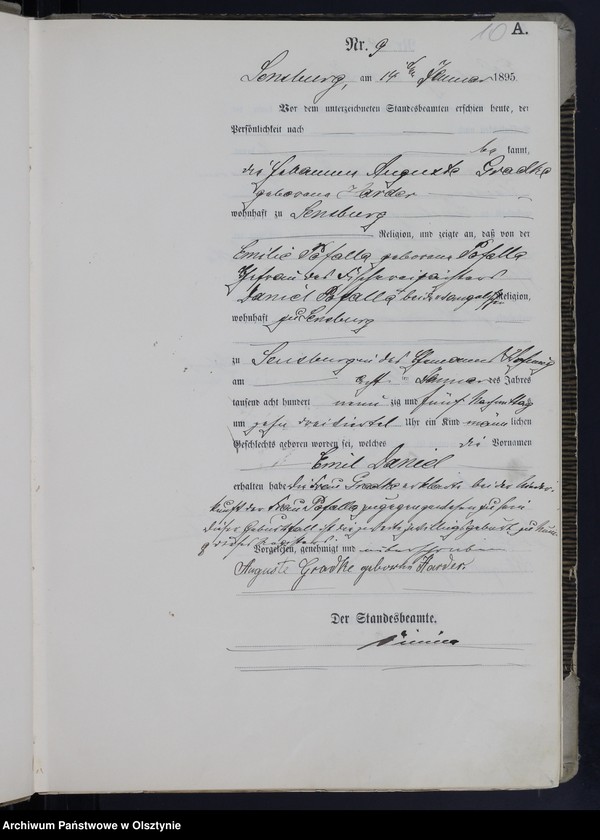 10 A.
Nr. 9
Sensburg, am 14 ten Januar 1895
Vor dem unterzeichneten Standesbeamten erschien heute, der
Persönlichkeit nach
be kannt,
die Johanna Auguste Gradke
geborene Harder
wohnhaft zu Sensburg
Religion, und zeigte an, daß von der
Emilie Pofalla geborene Pofalla
Ehefrau des Fischereipächters
Daniel Pofalla beide evangelischer Religion,
wohnhaft zu Sensburg
zu Sensburg in des Ehemannes Wohnung
am acht ten Januar des Jahres
tausend acht hundert neun zig und fünf Nachmittags
um zehn dreiviertel Uhr ein Kind männ lichen
Geschlechts geboren worden sei, welches die Vornamen
Emil Daniel
erhalten habe Die Frau Gradke erklärte bei der Nieder-
kunft der Frau Pofalla zugegen gewesen zu sein
Dieser Geburtsfall ist die zweite Zwillingsgeburt zu Num
9 dieses
Vorgelesen, genehmigt und unterschrieben
Auguste Gradke geborene Harder.
Der Standesbeamte.
Archiwum Państwowe w Olsztynie